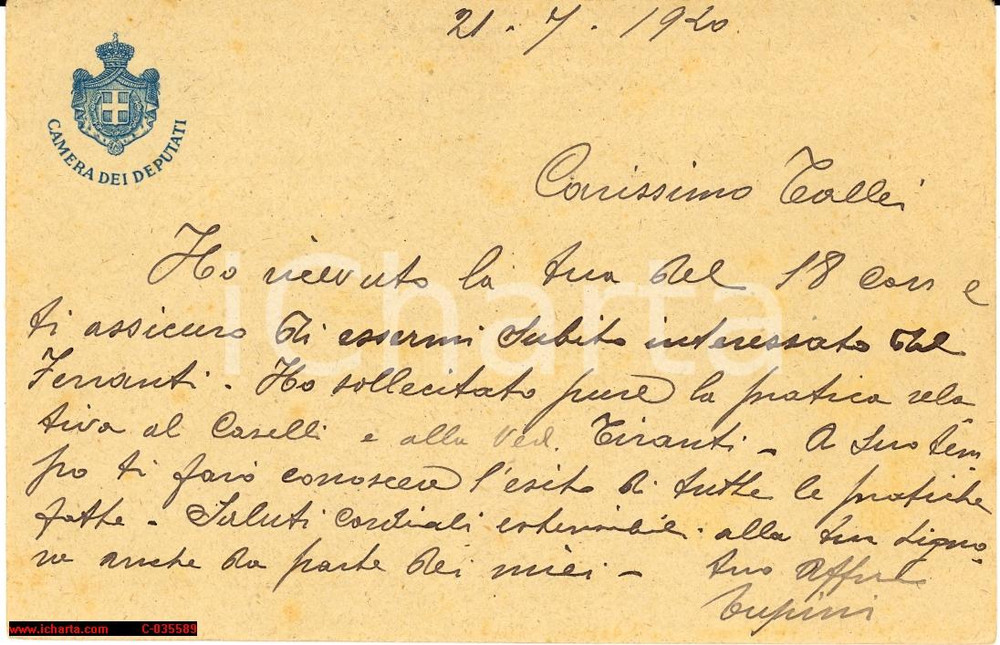 21 . 7 . 1920
CAMERA DEI DEPUTATI
Carissimo Tallei
Ho ricevuto la tua del 18 corr e
ti assicuro di essermi subito interessato del
Ferranti . Ho sollecitato pure la pratica rela
tiva al Caselli e alla Ved. Tiranti - A suo tem
po ti farò conoscere l'esito di tutte le pratiche
fatte - Saluti cordiali estensibili alla tua Signo
ra anche da parte dei miei -
tuo Affmo
Tupini
iCharta
www.icharta.com C-035589